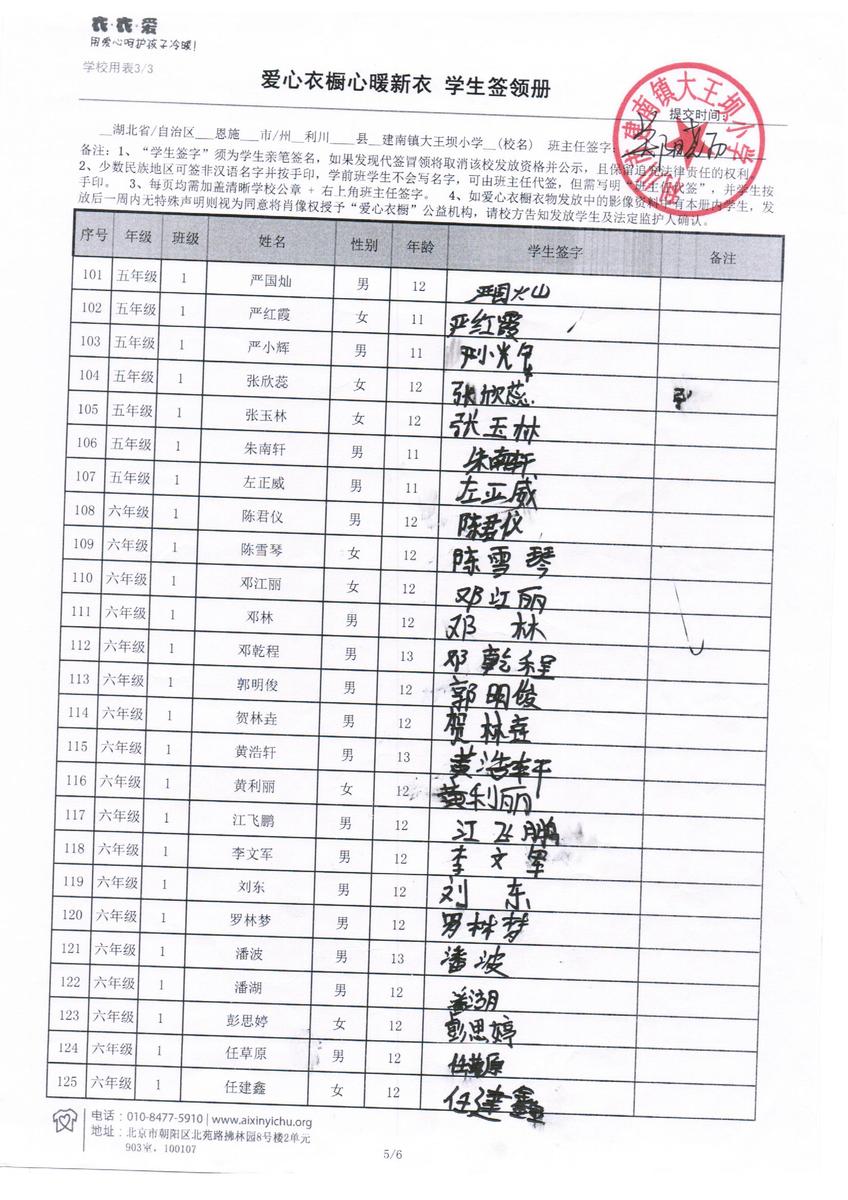 衣·衣·爱
用爱心呵护孩子冷暖!
学校用表3/3
爱心衣橱心暖新衣 学生签领册
提交时间:
湖北省/自治区 恩施 市/州 利川 县 建南镇大王坝小学 (校名) 班主任签字:
备注:1、“学生签字”须为学生亲笔签名,如果发现代签冒领将取消该校发放资格并公示,且保留追究法律责任的权利。
2、少数民族地区可签非汉语名字并按手印,学前班学生不会写名字,可由班主任代签,但需写明“班主任代签”,并学生按
手印。 3、每页均需加盖清晰学校公章 + 右上角班主任签字。 4、如爱心衣橱衣物发放中的影像资料中有本册内学生,发
放后一周内无特殊声明则视为同意将肖像权授予“爱心衣橱”公益机构,请校方告知发放学生及法定监护人确认。
序号 年级 班级 姓名 性别 年龄 学生签字 备注
101 五年级 1 严国灿 男 12 严国灿
102 五年级 1 严红霞 女 11 严红霞
103 五年级 1 严小辉 男 11 严小辉
104 五年级 1 张欣蕊 女 12 张欣蕊
105 五年级 1 张玉林 女 12 张玉林
106 五年级 1 朱南轩 男 11 朱南轩
107 五年级 1 左正威 男 11 左正威
108 六年级 1 陈君仪 男 12 陈君仪
109 六年级 1 陈雪琴 女 12 陈雪琴
110 六年级 1 邓江丽 女 12 邓江丽
111 六年级 1 邓林 男 12 邓林
112 六年级 1 邓乾程 男 13 邓乾程
113 六年级 1 郭明俊 男 12 郭明俊
114 六年级 1 贺林垚 男 12 贺林垚
115 六年级 1 黄浩轩 男 13 黄浩轩
116 六年级 1 黄利丽 女 12 黄利丽
117 六年级 1 江飞鹏 男 12 江飞鹏
118 六年级 1 李文军 男 12 李文军
119 六年级 1 刘东 男 12 刘东
120 六年级 1 罗林梦 男 12 罗林梦
121 六年级 1 潘波 男 13 潘波
122 六年级 1 潘湖 男 12 潘湖
123 六年级 1 彭思婷 女 12 彭思婷
124 六年级 1 任草原 男 12 任草原
125 六年级 1 任建鑫 女 12 任建鑫
电话:010-8477-5910 | www.aixinyichu.org
地址:北京市朝阳区北苑路拂林园8号楼2单元
903室,100107
5/6